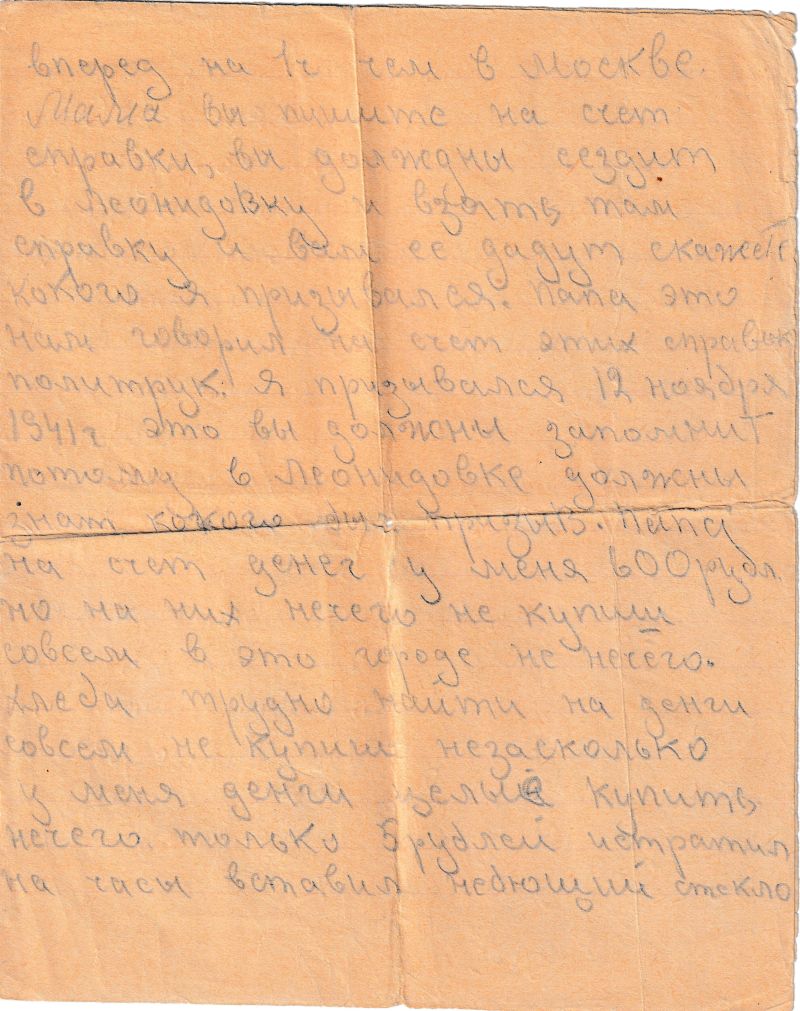 вперед на 1ч чем в Москве.
Мама вы пишите на счет
справки, вы долждны сездит
в Леонидовку и взять там
справку и вам ее дадут скажете
кокого я призывался. Папа это
нам говорил на счет этих справок
политрук. Я призывался 12 ноября
1941г это вы должны запомнит
потому в Леонидовке должны
знат кокого был призыв. Папа
на счет денег у меня 600 рубл.
но на них нечего не купиш
совсем в это городе не нечего.
хлеба трудно найти на денги
совсем не купиш незасколько
у меня денги целые купить
нечего. только 5 рублей истратил
на часы вставил небющий стекло